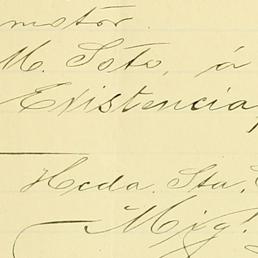 motor.
M. Soto, á
Existencia,
Hcda. Sta.
Mig!